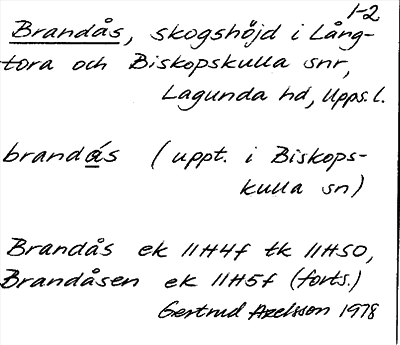 1-2
Brandås, skogshöjd i Lång-
tora och Biskopskulla snr,
Lagunda hd, Upps. l.
brandås (uppt. i Biskops-
kulla sn)
Brandås ek 11H4f tk 11H50,
Brandåsen ek 11H5f (forts.)
Gertrud Axelsson 1978